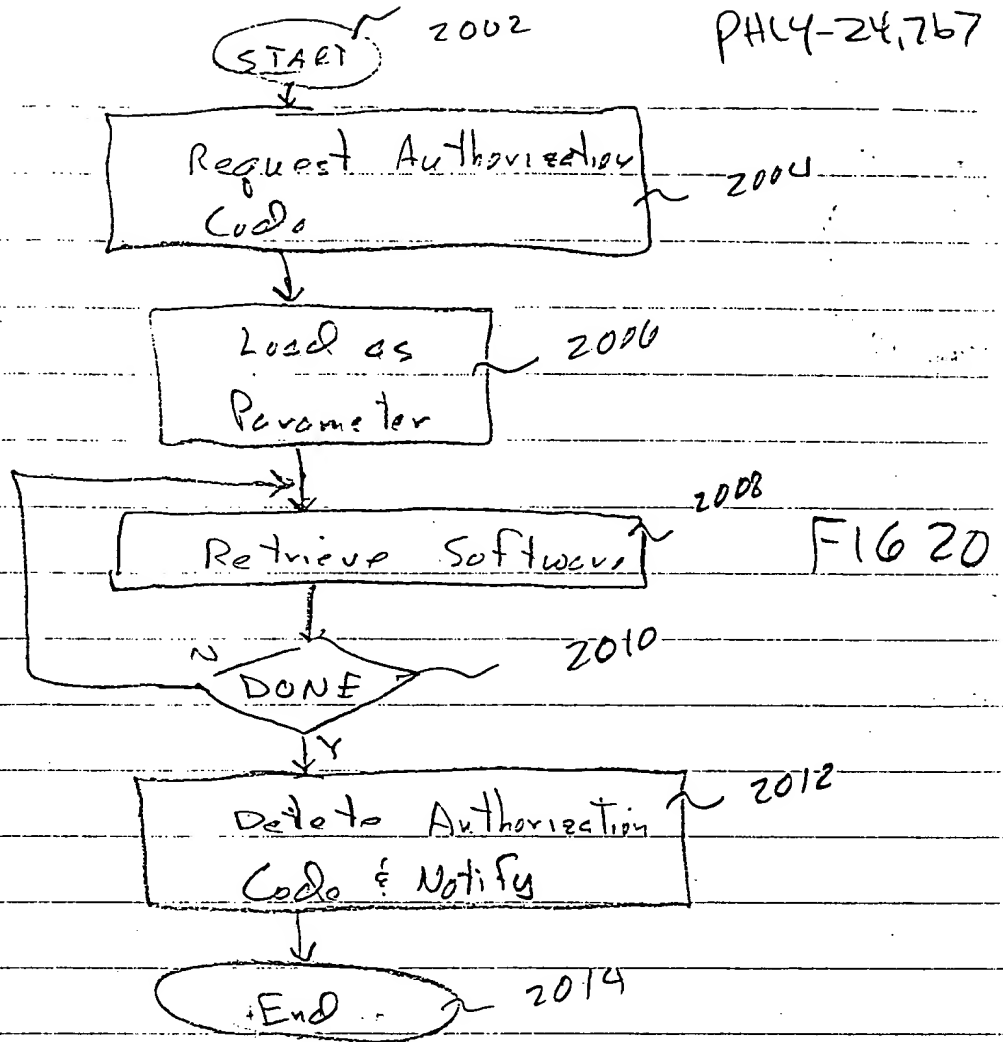 2002
PHLY-24,767
START
Request Authorization
Code
2004
Load as
Parameter
2006
2008
Retrieve Software
FIG 20
N
DONE
2010
Y
2012
Delete Authorization
Code & Notify
End
2014